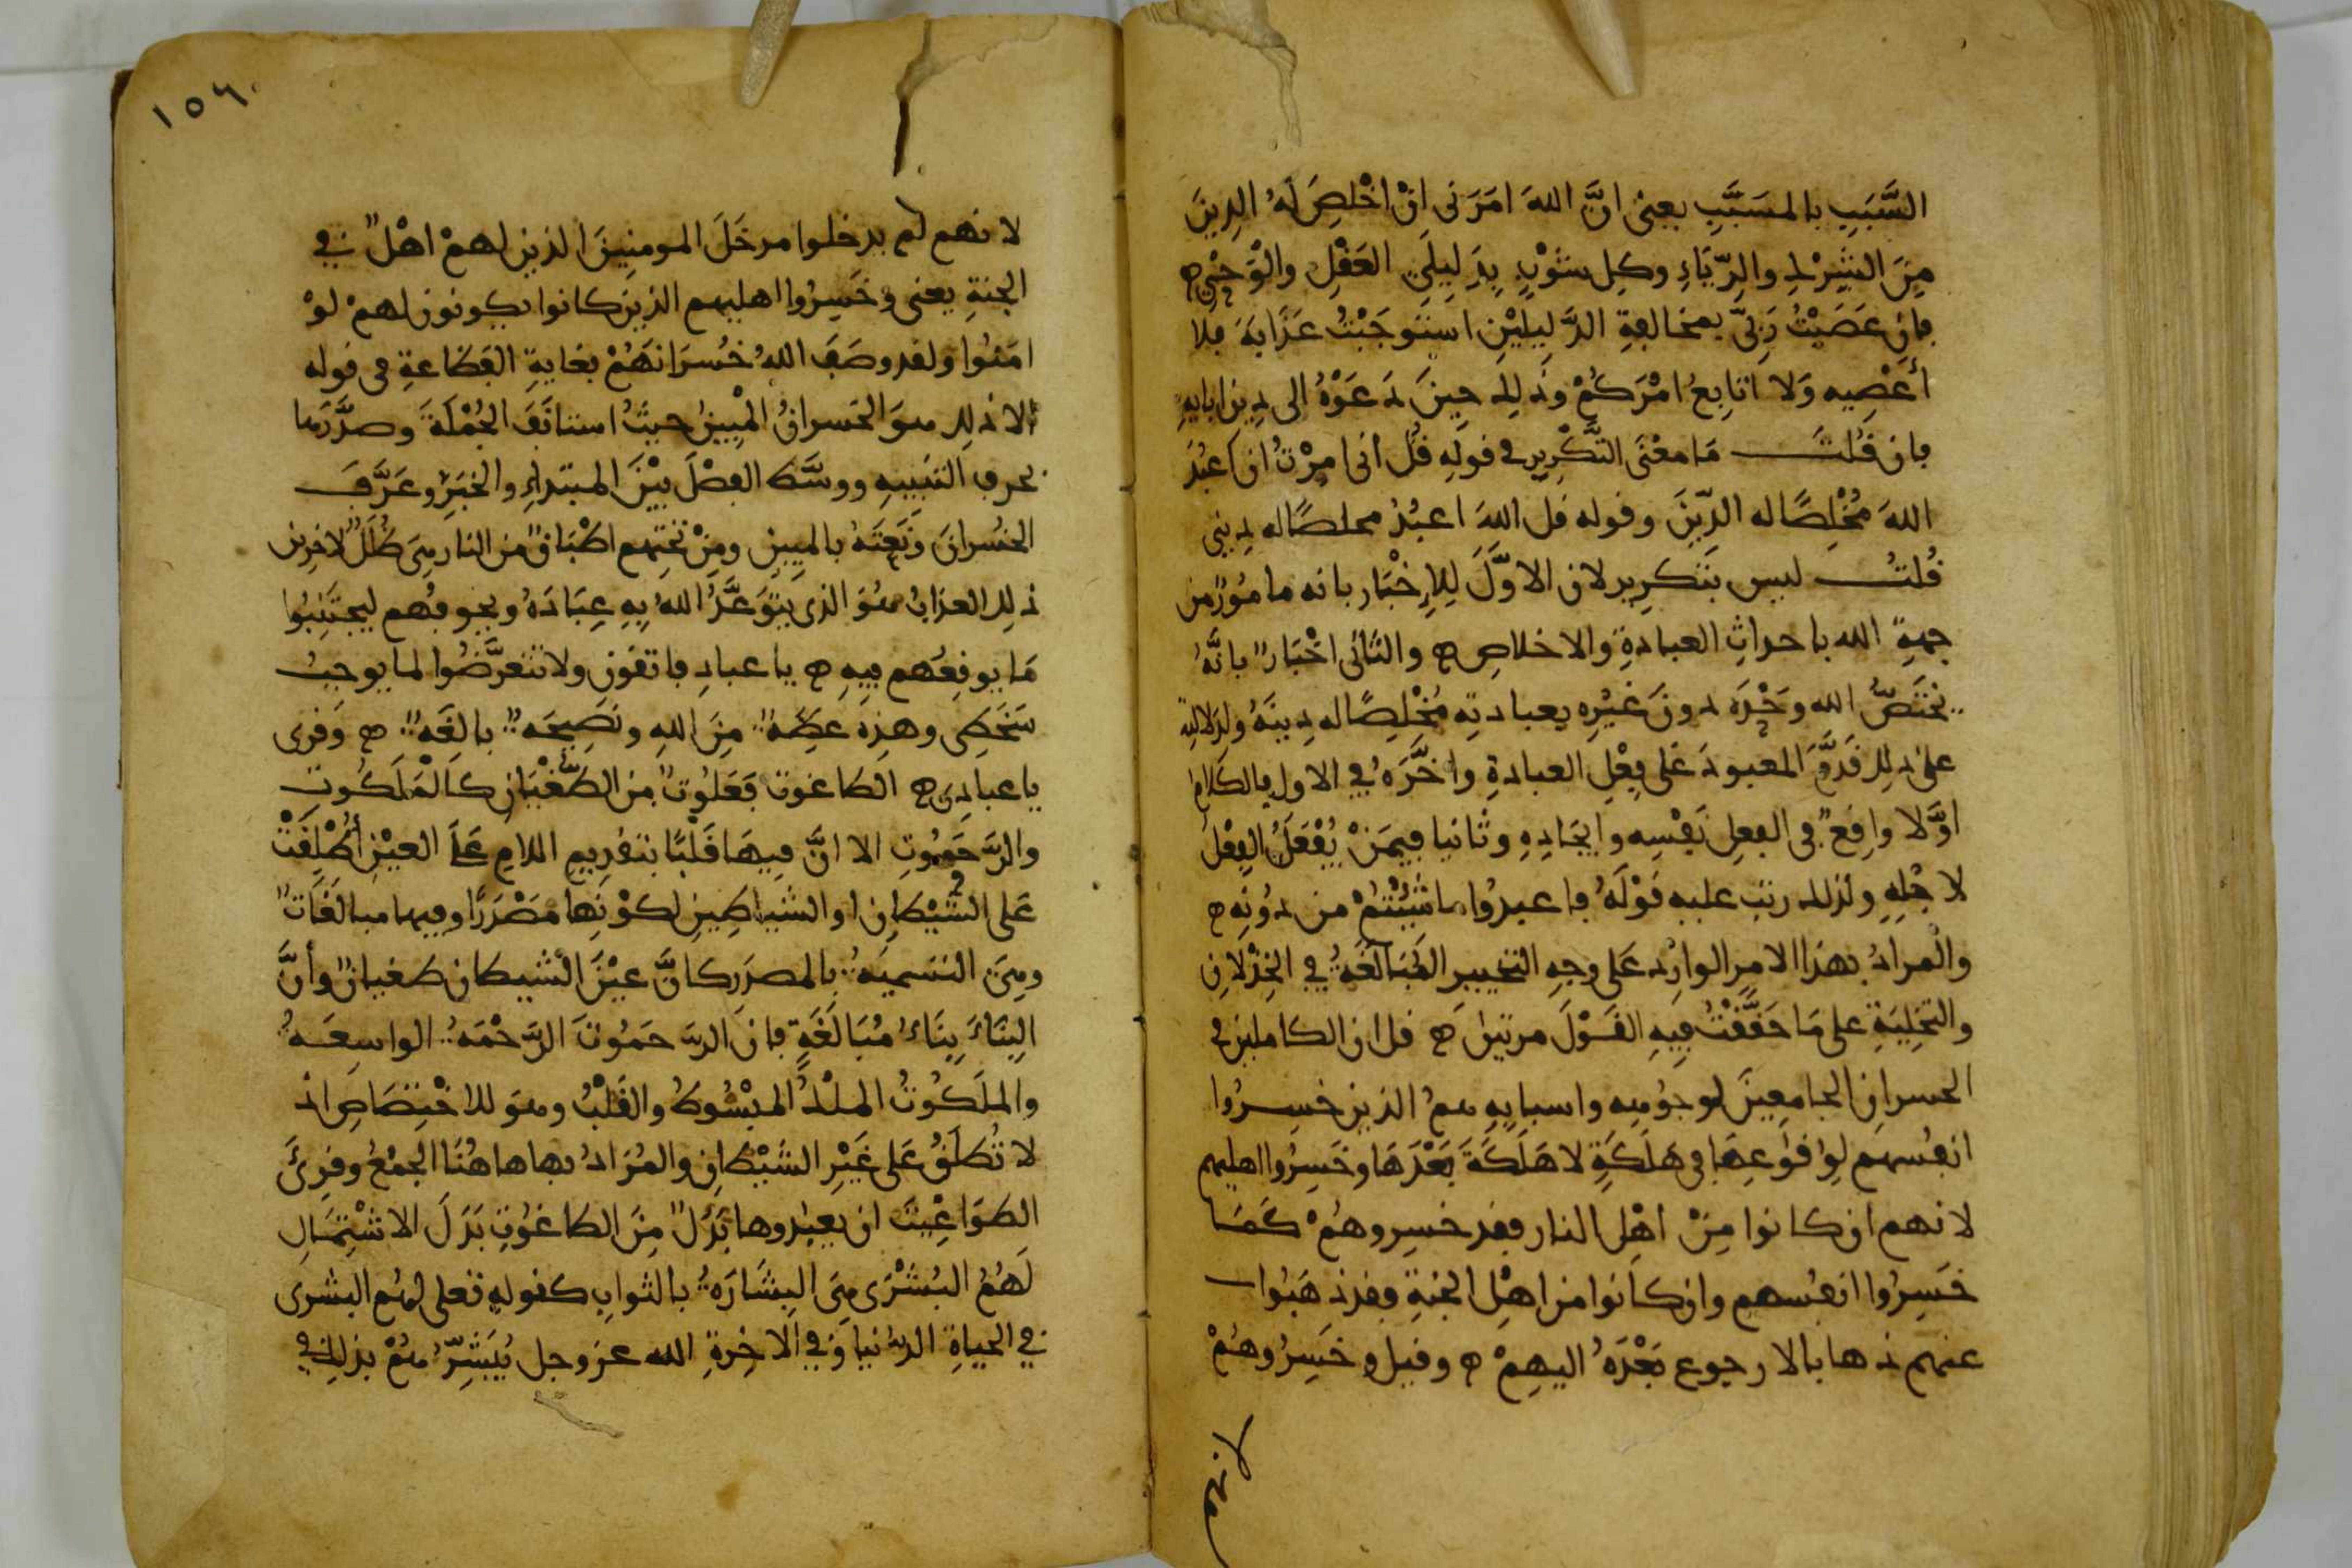 السَّبَبِ بالمسَبَّبِ يعنى انَّ اللهَ امَرَنى انْ اخْلصَ لَهُ الدِينَ
مِنَ الشِرْكِ والرِّيَاءِ وكلِ شَوْبٍ بِدَلِيلَىِ العَقْلِ والوَحْىِ ھ
فان عَصَيْتُ رَبىّ بمخالفةِ الدَّلِيلَيْنِ اسْتَوجَبْتُ عَذَابَهَ فلا
أعْصِيه وَلا اتابِعُ امْرَكُمْ وذلِكَ حِينَ دَعَوْهُ الى دِين ابايهِمْ
فان قُلتَ مَا معْنَى التَّكْرِيرِ فى قولِه قُل انى امِرْتُ ان اعْبُدَ
اللهَ مُخْلِصًا له الدِّينَ وقوله قل اللهَ اعبُدُ مخلصًا له دِينى
قُلتُ ليس بتَكرِير لان الاوَّلَ لِلإخْبَار بانه مامُورٌ من
جهةِ الله باحداثِ العبادةِ والاخلاصِ ھ والثانى اخْبَارٌ بانَّهُ
يختَصُّ الله وَحْدَه دونَ غَيْرِه بعبادتِه مُخْلِصًا له دينَهُ ولدلالتِه
على ذلك قَدَّمَ المعبودَ عَلى فِعْلِ العبادةِ واخَّرَهُ فى الاول فالكلامُ
اوَّلا واقِعٌ فى الفعلِ نَفْسِه وايجَادِهِ وثانيا فيمَنْ يُفْعَلُ الفِعْلُ
لاجْلِهِ ولذلك رتب عليه قوْلَهُ فاعبدُوا ما شِئْتمْ من دُونِه ھ
والمرادُ بهذا الامرِ الوارِدِ عَلى وجهِ التخييرِ المُبَالَغَهُ فى الخِذْلانِ
والتخْلِيَةِ على مَا حَقَّقْتُ فِيهِ القَوْلَ مرتينِ ھ قل ان الكاملين فى
الخسرانِ الجامِعِينَ لوجُوهِه واسبابِهِ همُ الذين خسِرُوا
انفُسهم لِوُقوعِهَا فى هَلَكَةٍ لا هَلَكَةَ بَعْدَهَا وخَسِرُوا اهليهم
لانهم ان كانوا مِنْ اهْلِ النار فقد خسِروهُمْ كمَا
خَسِرُوا انفُسهم وان كانوا من اهْلِ الجنةِ فقد ذهَبُوا
عنهم ذهابا لا رجوع بَعْدَهُ اليهِمْ ھ وقيل وخَسِرُوهُمْ
لانهم
١٥٦
لانهم لم يدخلوا مدخَلَ المومنِينَ الذين لهمْ اهْلٌ فى
الجنةِ يعنى وخَسِرُوا اهليهم الذين كانوا يكونون لهمْ لوْ
امنُوا ولقد وصَفَ اللهُ خُسرَانهُمْ بغايةِ الفظاعةِ فى قوله
الا ذلك هوَ الخسرانُ المُبِينُ حيثُ استانَفَ الجُمْلَةَ وصدَّرَها
بحرفِ التنبيهِ ووسَّطَ الفصْلَ بيْنَ المبتداءِ والخبَرِ وعَرَّفَ
الخُسرانَ ونَعَتَهُ بالمبِينِ ومِنْ تحْتِهم اطْبَاقٌ من النار هِىَ ظُلَلٌ لاخِرِين
ذلك العذابُ هوَ الذى يتوَعَّدُ اللهُ بِهِ عِبَادَهُ ويخوفُهم ليجتَنِبُوا
مَا يوقِعُهم فِيهِ ھ يا عبادِ فاتقون ولا تتعرَّضُوا لما يوجبُ
سَخَطِى وهذِهِ عِظَةٌ مِنَ اللهِ ونَصِيحَهٌ بالِغَهٌ ھ وَقرى
يا عبادِى ھ الطاغوتُ فَعَلُوتٌ من الطغْيَانِ كالْمَلَكُوتِ
والرَّحَمُوتِ الا انَّ فيهَا قَلْبًا بتقدِيمِ اللامِ عَلَى العيْنِ أُطْلِقَتْ
عَلى الشَّيْطانِ او الشياطِينِ لكوْنِهَا مَصْدَرًا وفيها مبالَغَاتٌ
وهِىَ التسميهُ بالمصدَرِ كانَّ عيْنَ الشيطان طغيانٌ وأنَّ
البِنَاءَ بِنَاءُ مُبَالَغَةٍ فان الرحَمُوتَ الرَّحْمَهُ الواسِعَهُ
والملَكُوتُ الملْكُ المبْسُوطُ والقَلْبُ وهوَ للاخْتِصَاصِ اذ
لا تُطلَقُ عَلى غَيْرِ الشَيْطانِ والمُرَادُ بها هاهُنَا الجمْعُ وقرِئَ
الطوَاغِيت ان يعبُدوها بَدَلٌ مِنَ الطاغُوتِ بَدَلَ الاشْتِمَالِ
لَهُمُ البُشْرَى هِىَ البِشَارَهُ بالثوابِ كقولهِ تعلى لهُم البشرى
فى الحياةِ الدنيا وَفِى الاخِرةِ الله عز وجل يُبَشِّرُهُمْ بذلِكَ فى